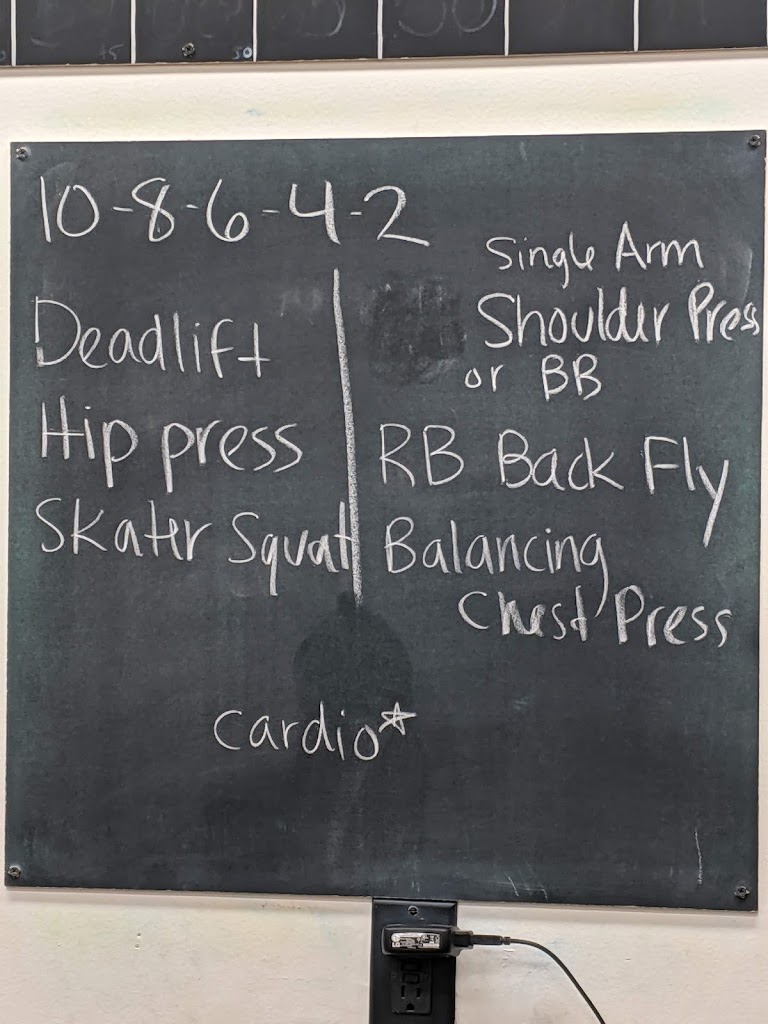 10-8-6-4-2
Deadlift
Hip press
Skater Squat
Single Arm
Shoulder Press
or BB
RB Back Fly
Balancing
Chest Press
Cardio☆